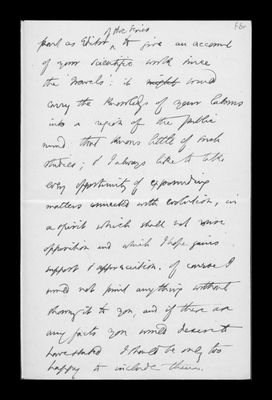 of the Series
58
part as Editor, to give an account
of your scientific work since
the 'Travels': it might would
carry the knowledge of your labours
into a region of the public
mind that knows little of such
studies; & I always like to take
every opportunity of expounding
matters connected with evolution, in
a spirit which shall not rouse
opposition and which I hope gains
support & appreciation. Of course I
would not print anything without
showing it to you, and if there are
any facts you would desire to
have stated I should be only too
happy to include them.